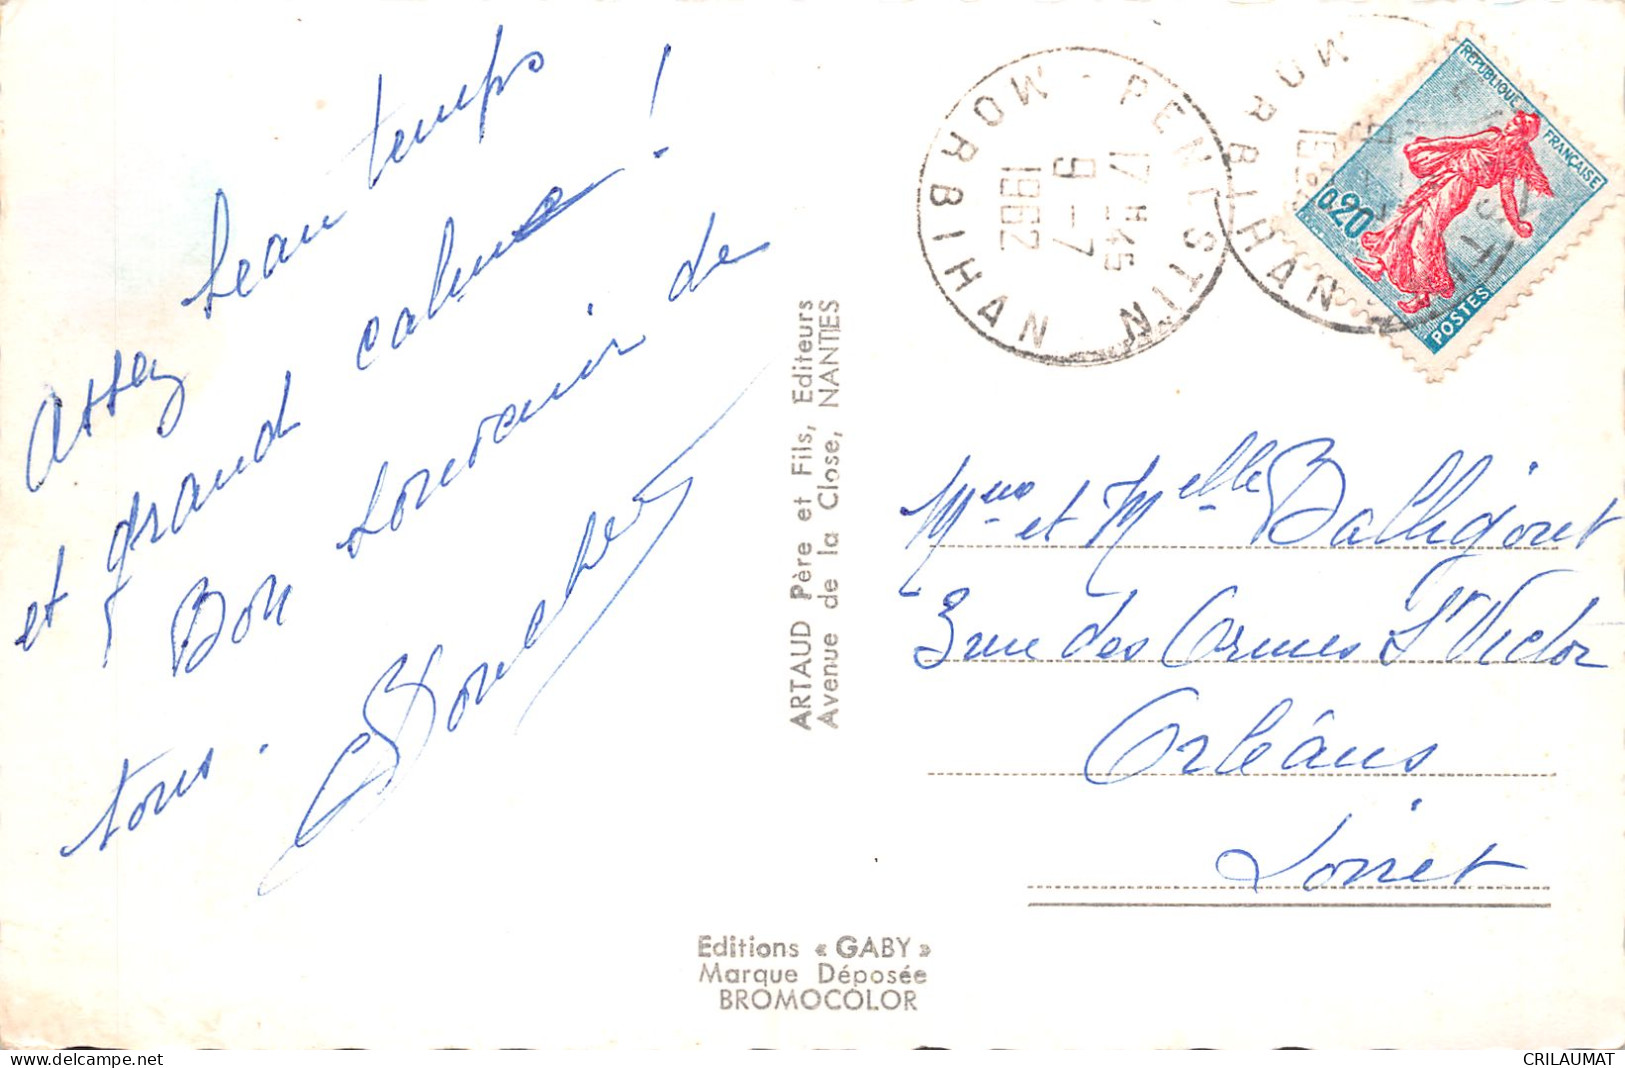 Assez beau temps
et grand calme !
Bon souvenir de
tous.
ARTAUD Père et Fils, Editeurs
Avenue de la Close, NANTES
Editions « GABY »
Marque Déposée
BROMOCOLOR
MORBIHAN - PENESTIN
17 H 45
9-7
1962
MORBIHAN
REPUBLIQUE FRANÇAISE
0,20
POSTES
Mme et Melle
3 rue des Ormes St Victor
Orléans
Loiret
www.delcampe.net
CRILAUMAT